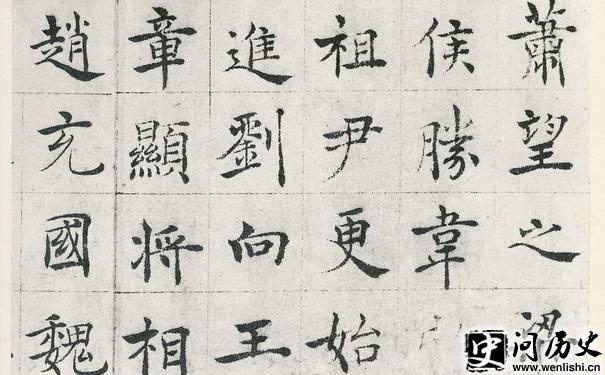 蕭望之
侯勝韋
祖尹更始
進劉向王
章顯將相
趙充國魏
史 问历史
www.wenlishi.cn